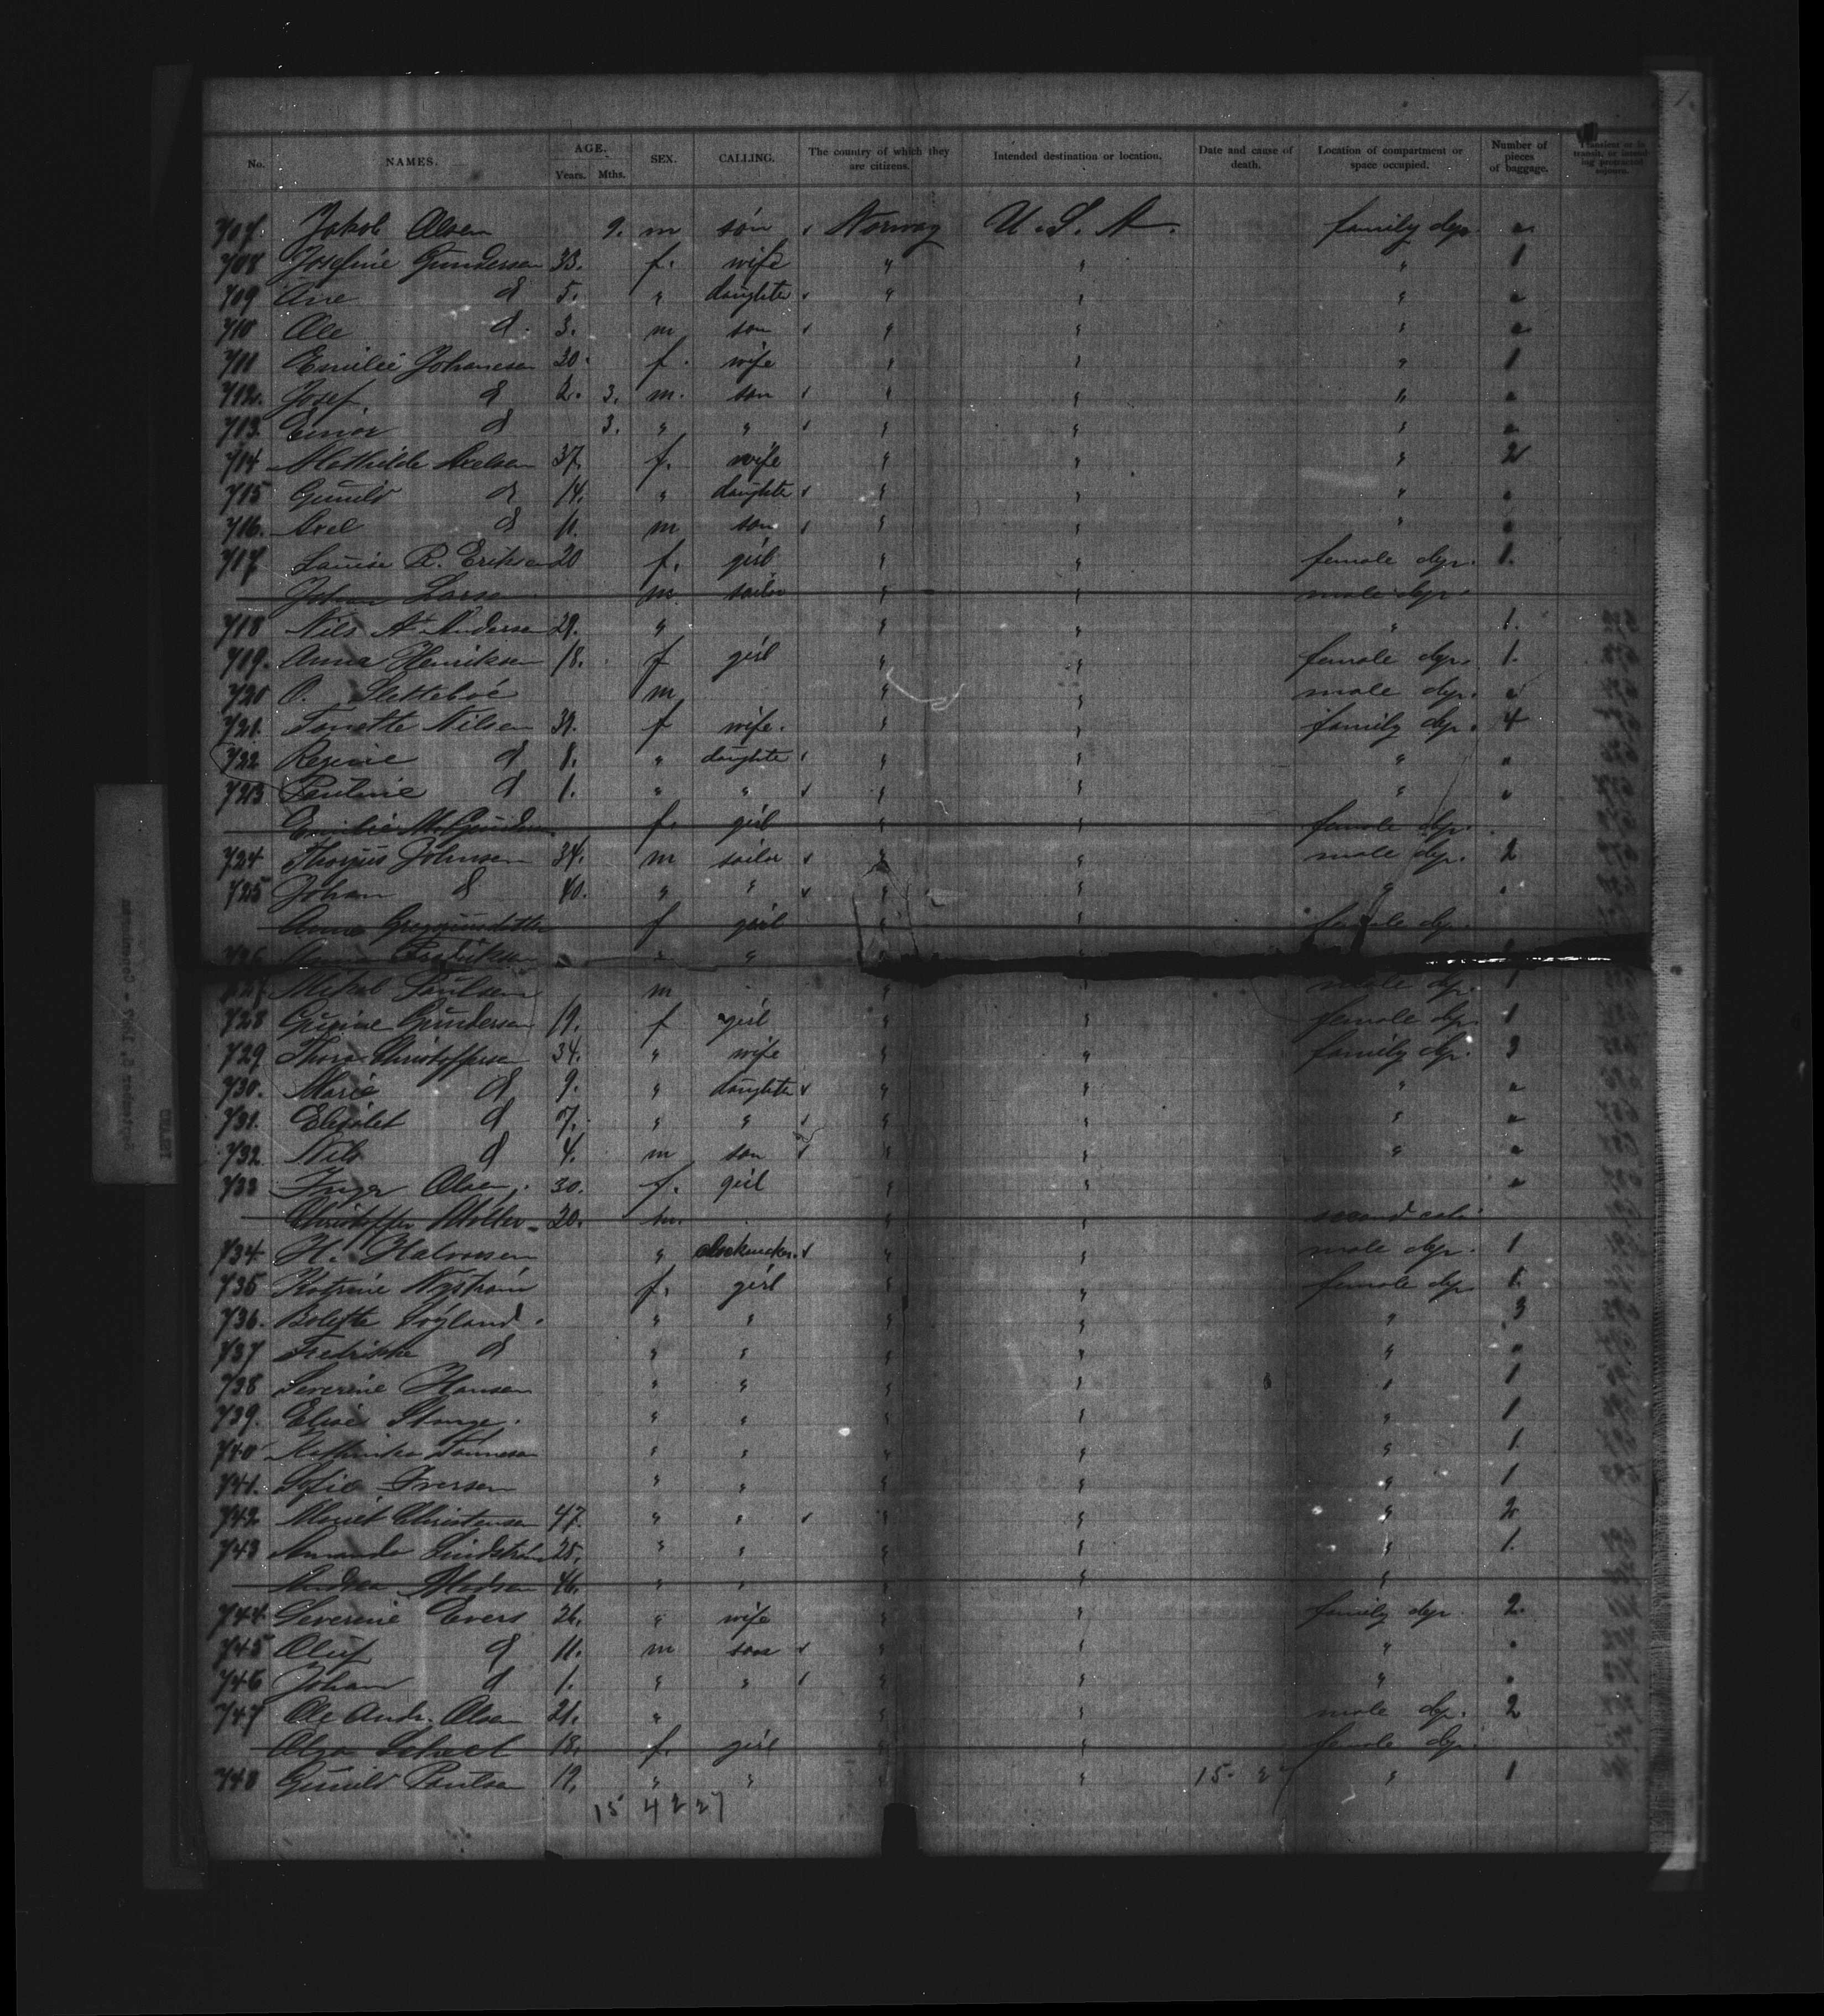 No. NAMES. AGE. Years. Mths. SEX. CALLING. The country of which they are citizens. Intended destination or location. Date and cause of death. Location of compartment or space occupied. Number of pieces of baggage. Transient or in transit, or intending protracted sojourn.
707. Jakob Olsen 9. m son Norway U.S.A. family dep.
708 Josefine Gundersen 33. f. wife " " " 1
709 Ane d 5. " daughter " " "
710 Ole d. 3. m son " " "
711 Emilie Johanesen 30. f. wife " " " 1
712. Josef d 2. 3. m. son " " "
713. Einar d 3. " " " " "
714 Mathilde Axelsen 37. f. wife " " " 2
715 Gunild d 14. " daughter " " "
716. Axel d 11. m son " " "
717. Louise R. Eriksen 20 f. girl " " female dep. 1.
Johan Larsen m. sailor " " male dep.
718 Nils A. Andersen 29. " " " " 1.
719. Anna Henriksen 18. f girl " " female dep. 1.
720 O. Sletteboe m " " male dep.
721. Tonette Nilsen 39. f wife. " " family dep. 4
722 Regine d 8. " daughter " " "
723 Pauline d 1. " " " " "
Emilie M. Gundersen f. girl " " female dep.
724 Thorjus Johnsen 34. m sailor " " male dep. 2
725 Johan d 40. " " " " "
Anna f girl " " female dep.
726 Fredriksen " " " "
727 Mikal Paulsen m " " male dep. 1
728 Gunine Gundersen 19. f girl " " female dep. 1
729 Thora Christoffersen 34. " wife " " family dep. 3
730. Marie d 9. " daughter " " "
731. Elisabet d 7. " " " " "
732 Nils d 4. m son " " "
733 Inger Olsen. 30. f. girl " "
Christoffer Möller 20. m. " " second cab.
734 H. Halvorsen " clockmaker. " " male dep. 1
735 Katrine Nyström f. girl " " female dep. 1.
736. Bolette Söyland. " " " " " 3
737 Fredrikke d " " " " "
738 Severine Hansen " " " " " 1
739. Elise Stange. " " " " " 1
740 Kathinka Tönnesen " " " " " 1.
741. Sofie Iversen " " " " " 1
742 Christensen 47. " " " " " 2
743 Amanda Lindström 25. " " " " " 1.
Andrea Madsen 46. " " " " "
744. Severine Evers 36. " wife " " family dep. 2.
745 Oluf d 11. m son " " "
746 Johan d 1. " " " " "
747 Ole Andr. Olsen 21. " " " male dep. 2
Olga 18. f. girl " " female dep.
748 Gunild Paulsen 19. " " " " 15. 27 " 1
15 4 2 27